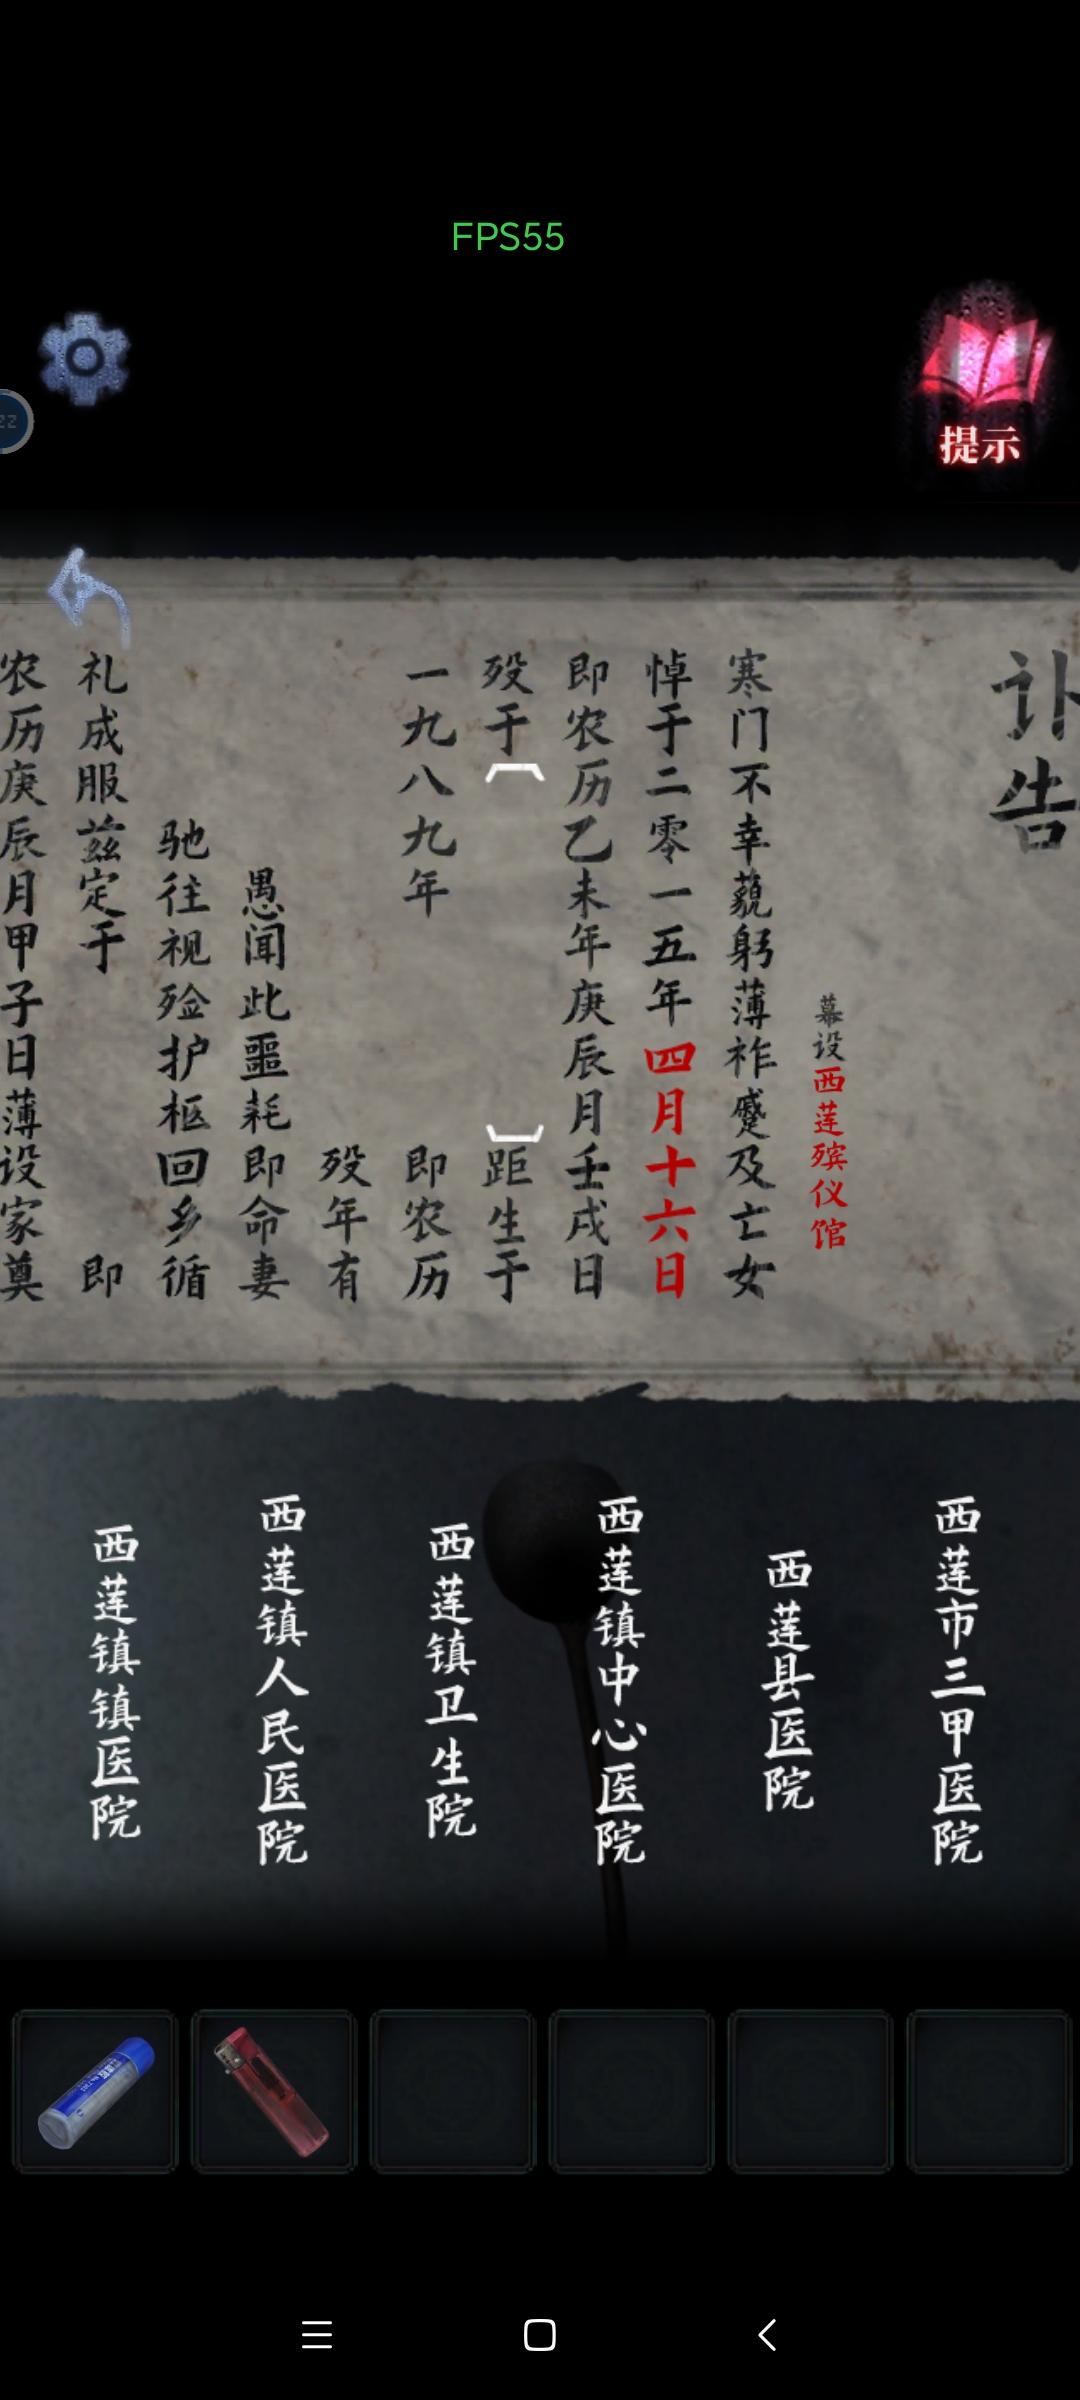 FPS55
提示
讣告
幕设西莲殡仪馆
寒门不幸藐躬薄祚蹙及亡女
悼于二零一五年四月十六日
即农历乙未年庚辰月壬戌日
殁于︹ ︺距生于
一九八九年 即农历
殁年有
愚闻此噩耗即命妻
驰往视殓护柩回乡循
礼成服兹定于 即
农历庚辰月甲子日薄设家奠
西莲市三甲医院
西莲县医院
西莲镇中心医院
西莲镇卫生院
西莲镇人民医院
西莲镇镇医院